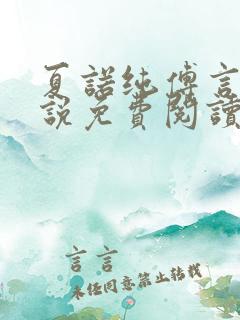 夏諾純傅言
說免費閱讀
言言
未经同意禁止转载